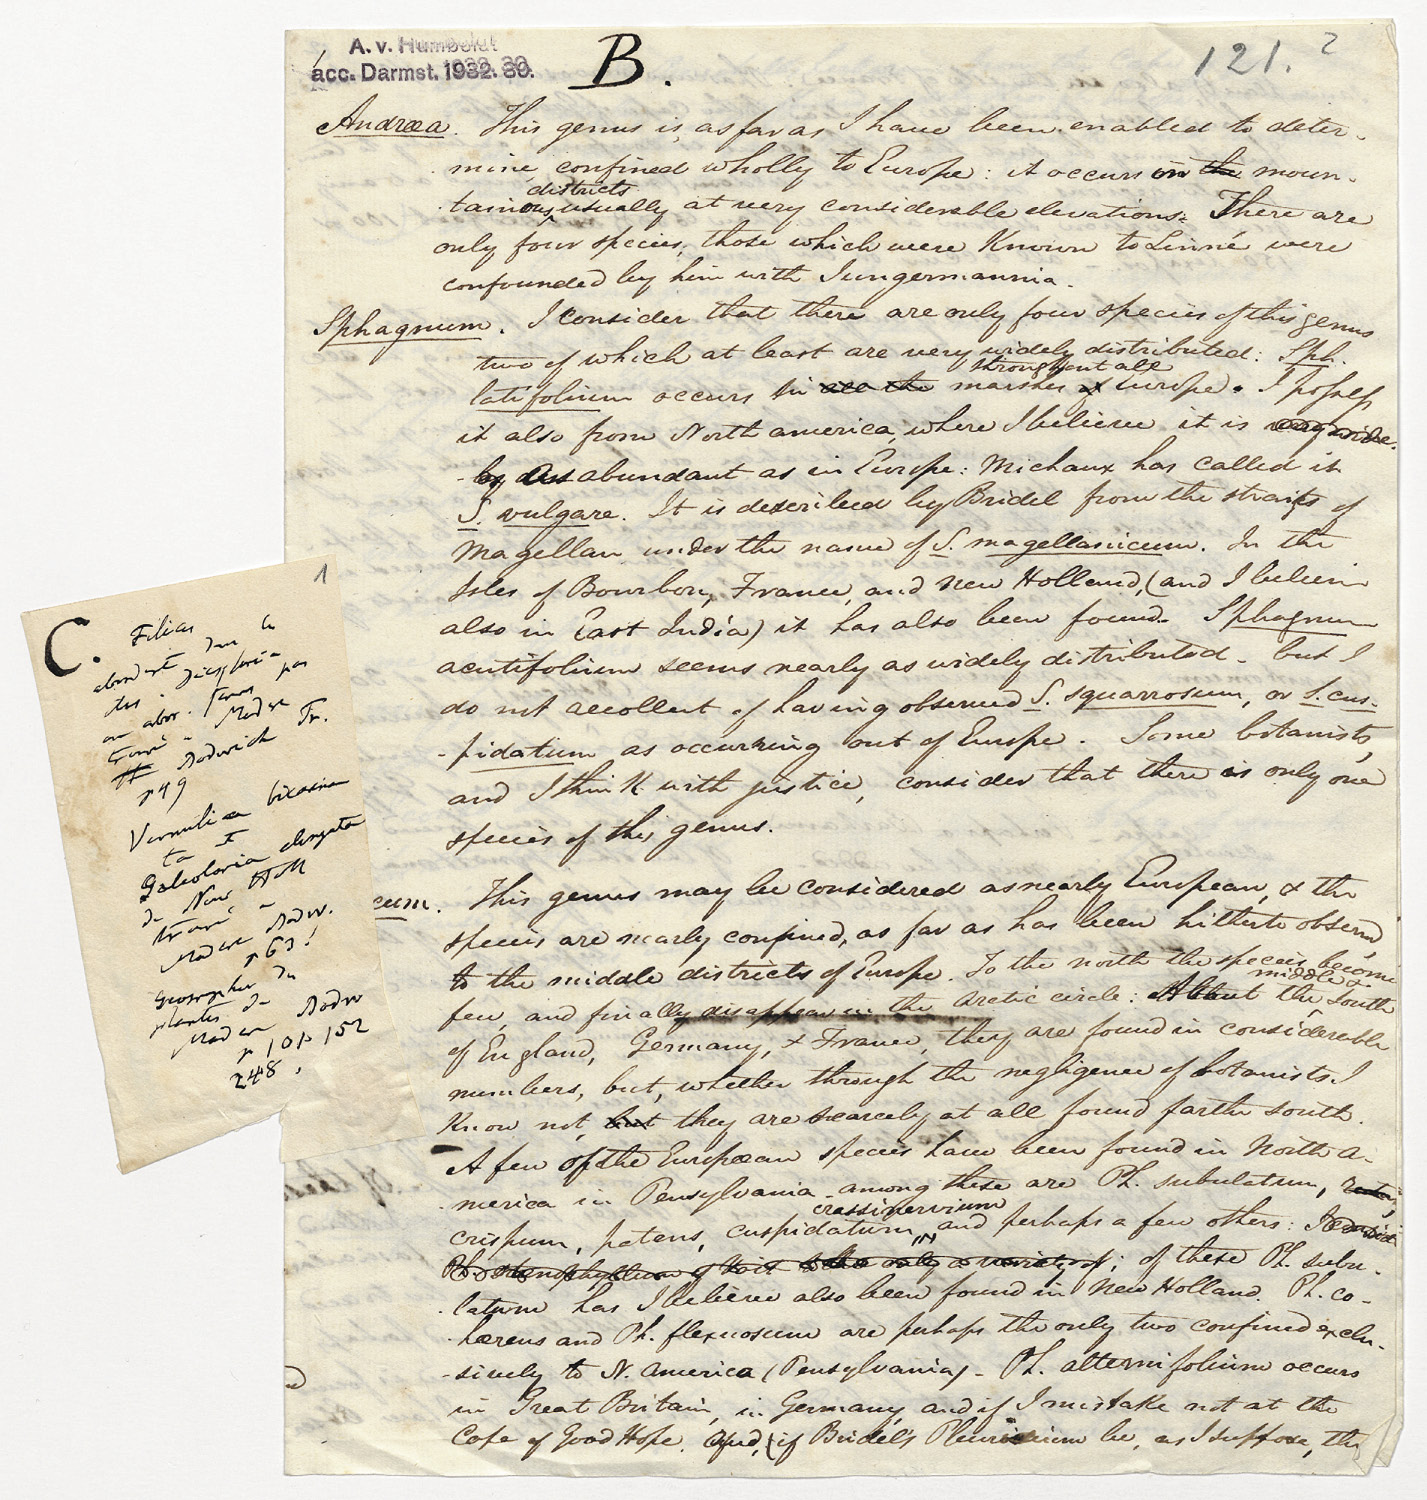 A. v. Humboldt
acc. Darmst. 1932. 30.
B.
121.
2
Andræa. This genus is, as far as I have been enabled to deter-
mine, confined wholly to Europe: it occurs in the moun-
districts
tainous, usually at very considerable elevations: There are
only four species, those which were known to Linné were
confounded by him with Jungermannia.
Sphagnum. I consider that there are only four species of this genus
two of which at least are very widely distributed: Sph.
throughout all
latifolium occurs in all the marshes of Europe. I possess
it also from North america, where I believe it is very wide-
ly as abundant as in Europe: Michaux has called it
S. vulgare. It is described by Bridel from the straits of
Magellan under the name of S. magellanicum. In the
Isles of Bourbon, France, and new Holland, (and I believe
also in East India) it has also been found. Sphagnum
acutifolium seems nearly as widely distributed. but I
do not recollect of having observed S. squarrosum, or S. cus-
pidatum as occurring out of Europe. Some botanists,
and I think with justice, consider that there is only one
species of this genus.
cum. This genus may be considered as nearly European, & the
species are nearly confined, as far as has been hitherto observed,
to the middle districts of Europe. To the north the species become
middle &
few, and finally disappear in the arctic circle: About the South
of England, Germany, & France, they are found in considerable
numbers, but, whether through the negligence of botanists I
know not, but they are scarcely at all found farther south.
A few of the European species have been found in North a-
merica in Pensylvania - among these are Ph. subulatum,
crassinervium
crispum, patens, cuspidatum, and perhaps a few others: I consider
Ph. stenophyllum of Voit to be only a variety of; of these Ph. subu-
latum has I believe also been found in New Holland. Ph. co-
hærens and Ph. flexuosum are perhaps the only two confined exclu-
sively to N. America (Pensylvania) - Ph. alternifolium occurs
in Great Britain, in Germany, and if I mistake not at the
Cape of Good Hope. and, (if Bridel's Pleuridium be, as I suppose, the
1
C. Filices
abondent dans la
des
149
Galeolaria elongata
de Nouv Holl
p 63!
Geographie des
plantes de
p 101 152
248.